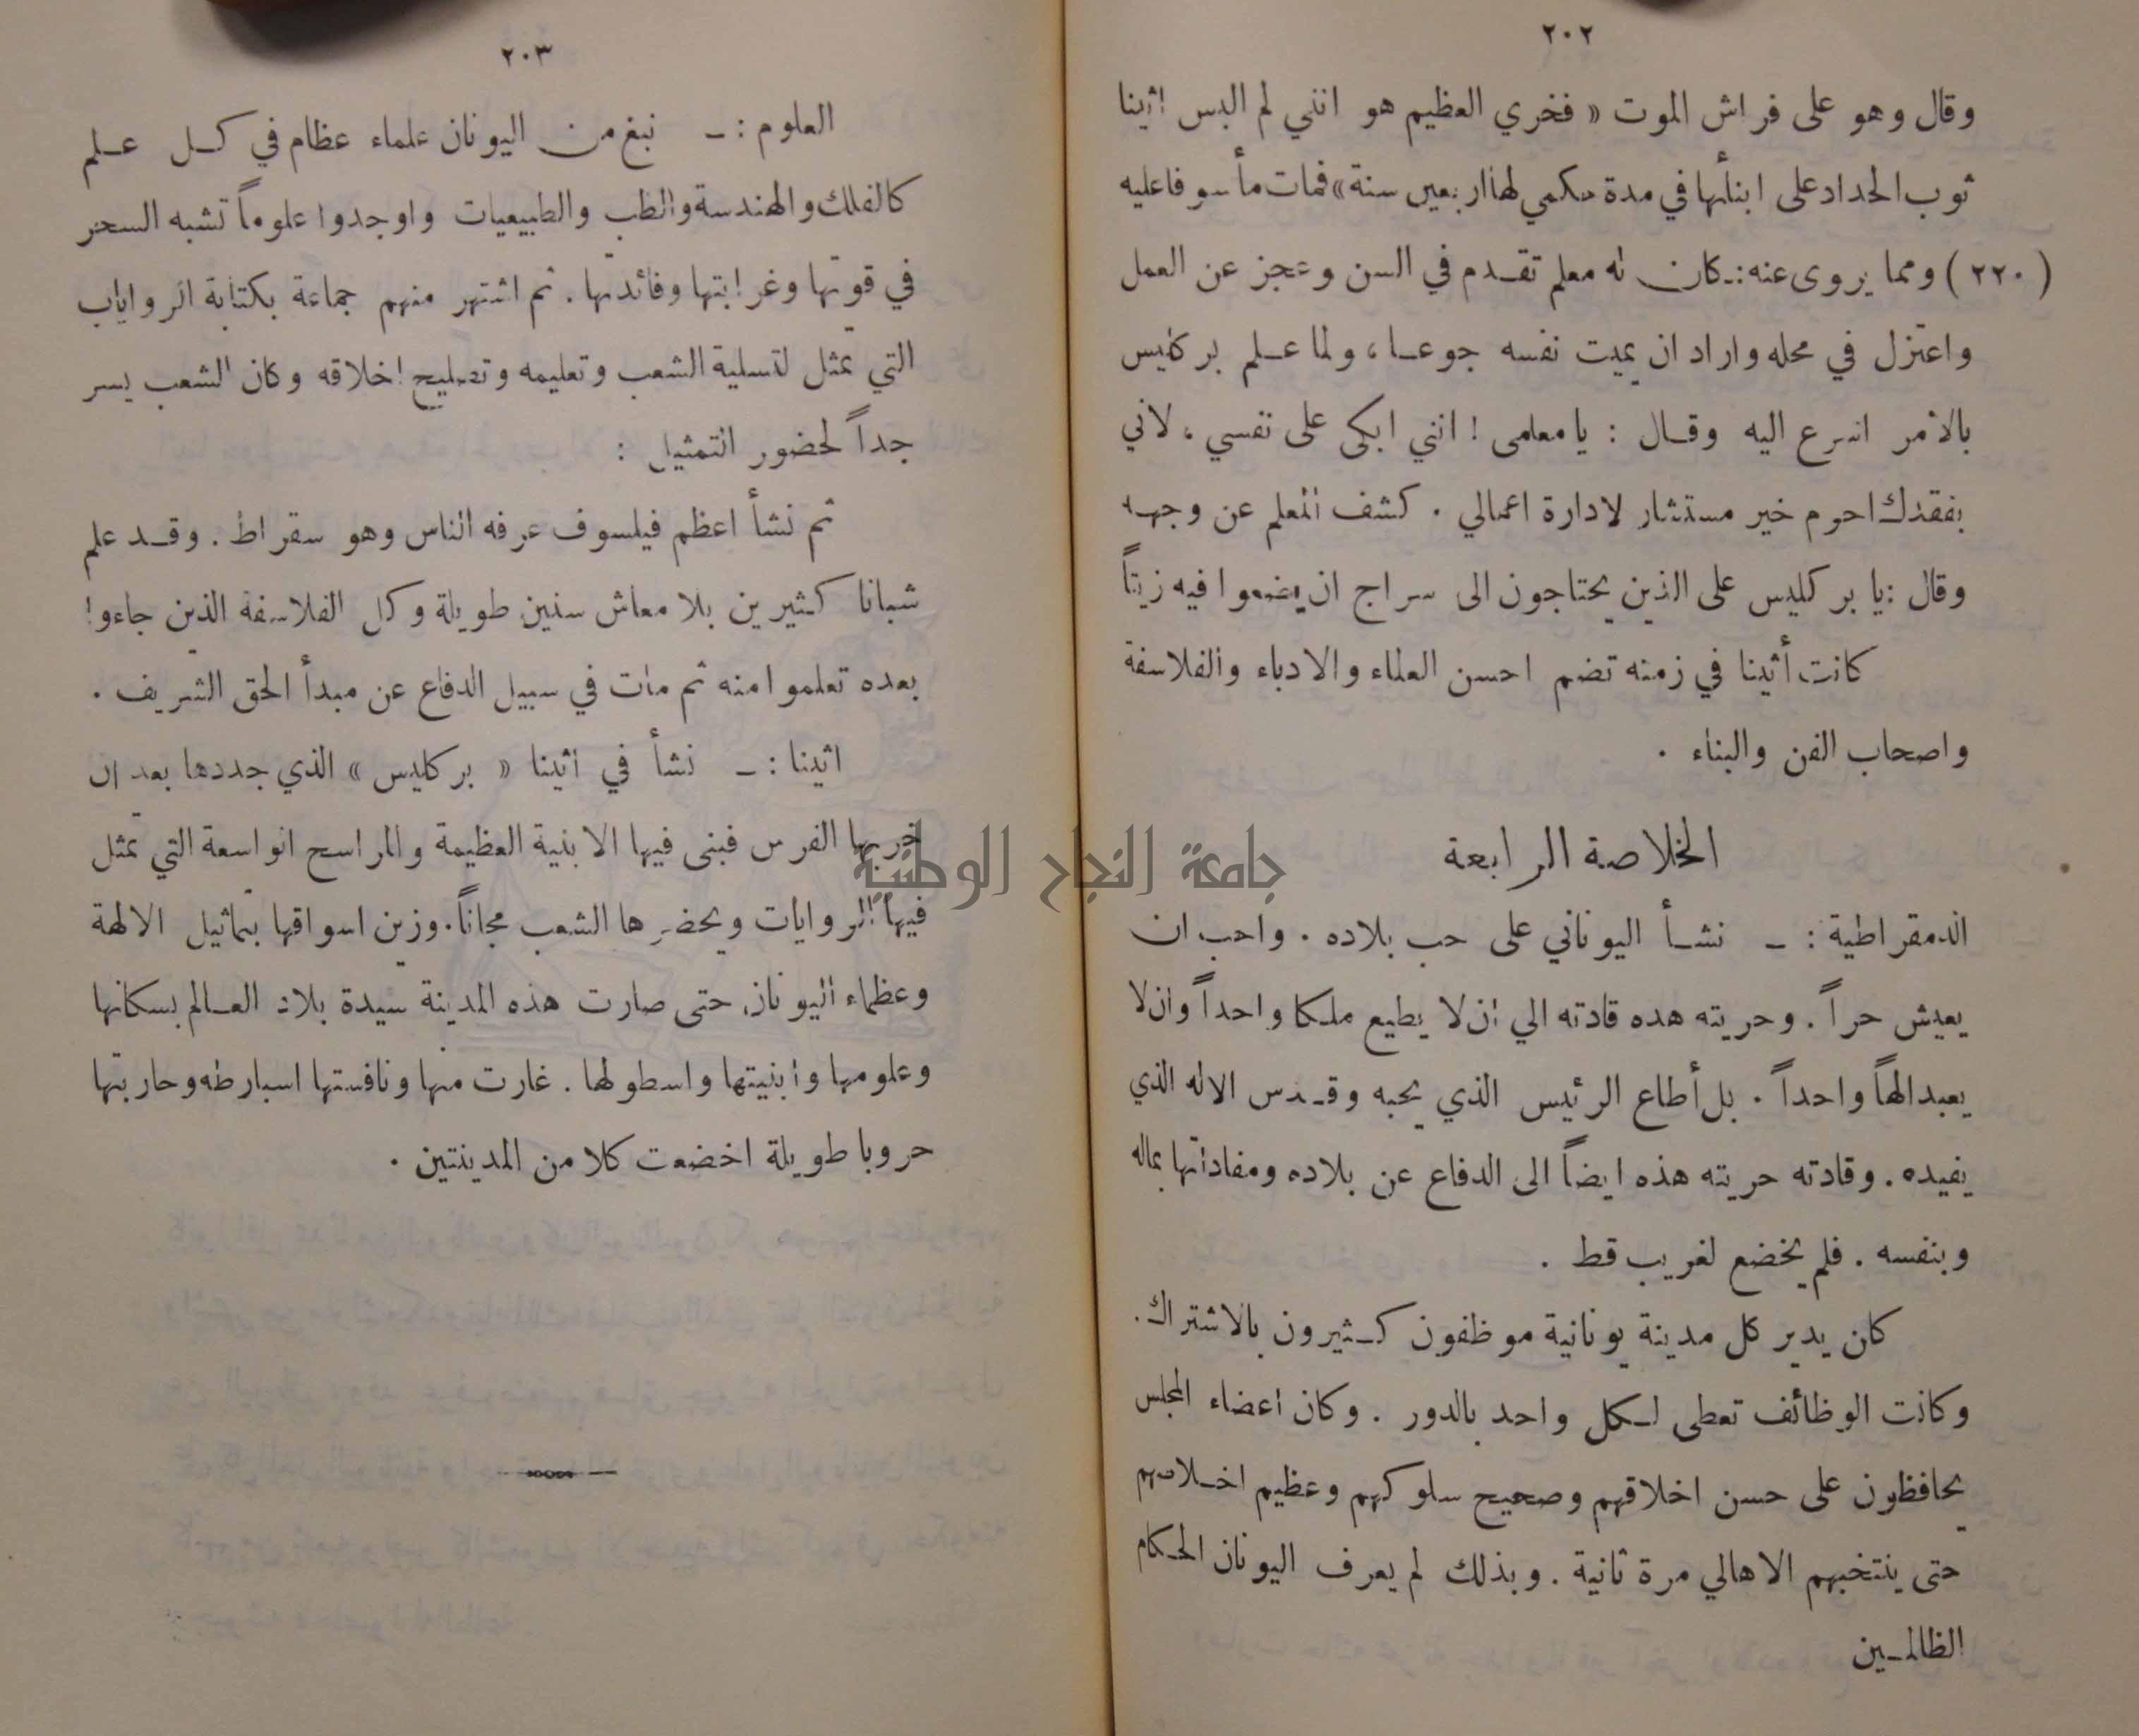 ٢٠٢
وقال وهو على فراش الموت « فخري العظيم هو انني لم البس اثينا
ثوب الحداد على ابنائها في مدة حكمي لها اربعين سنة» فمات مأسوفا عليه
(٢٢٠) ومما يروى عنه:ـ كان له معلم تقـدم في السن وعجز عن العمل
واعتزل في محله واراد ان يميت نفسه جوعـا، ولما عـلم بركليس
بالامر اسرع اليه وقـال : يا معلمى ! انني ابكى على نفسي ، لاني
بفقدك احرم خير مستشار لادارة اعمالي . كشف المعلم عن وجهه
وقال : يا بركليس على الذين يحتاجون الى سراج ان يضعوا فيه زيتاً
كانت أثينا في زمنه تضم احسن العلماء والادباء والفلاسفة
واصحاب الفن والبناء .
الخلاصة الرابعة
الدمقراطية : ـ نشـأ اليوناني على حب بلاده . واحب ان
يعيش حراً . وحريته هده قادته الي ان لا يطيع ملكا واحداً وان لا
يعبد الهاً واحداً . بل أطاع الرئيس الذي يحبه وقـدس الاله الذي
يفيده . وقادته حريته هذه ايضاً الى الدفاع عن بلاده ومفاداتها بماله
وبنفسه . فلم يخضع لغريب قط .
كان يدير كل مدينة يونانية موظفون كـثيرون بالاشتراك.
وكانت الوظائف تعطى لـكل واحد بالدور . وكان اعضاء المجلس
يحافظون على حسن اخلاقهم وصحيح سلوكهم وعظيم اخـلاصهم
حتى ينتخبهم الاهالي مرة ثانية . وبذلك لم يعرف اليونان الحـكام
الظالمـين
٢٠٣
العلوم : ـ نبغ من اليونان علماء عظام في كـل عـلم
كالفلك والهندسة والطب والطبيعيات واوجدوا علوماً تشبه السحر
في قوتها وغرابتها وفائدتها . ثم اشتهر منهم جماعة بكتابة الروايات
التي تمثل لتسلية الشعب وتعليمه وتصليح اخلاقه وكان الشعب يسر
جداً لحضور التمثيل :
ثم نشأ اعظم فيلسوف عرفه الناس وهو سقراط . وقـد علم
شبانا كـثيرين بلا معاش سنين طويلة وكل الفلاسفة الذين جاءوا
بعده تعلموا منه ثم مات في سبيل الدفاع عن مبدأ الحق الشريف .
اثينا : ـ نشأ في اثينا « بركليس » الذي جددها بعد ان
خربها الفرس فبنى فيها الابنية العظيمة والمراسح الواسعة التي تمثل
فيها الروايات ويحضرها الشعب مجاناً. وزين اسواقها بتماثيل الالهة
وعظماء اليونان حتى صارت هذه المدينة سيدة بلاد العـالم بسكانها
وعلومها وابنيتها واسطولها . غارت منها ونافستها اسبارطه وحاربتها
حروبا طويلة اخضعت كلا من المدينتين .
جامعة النجاح الوطنية